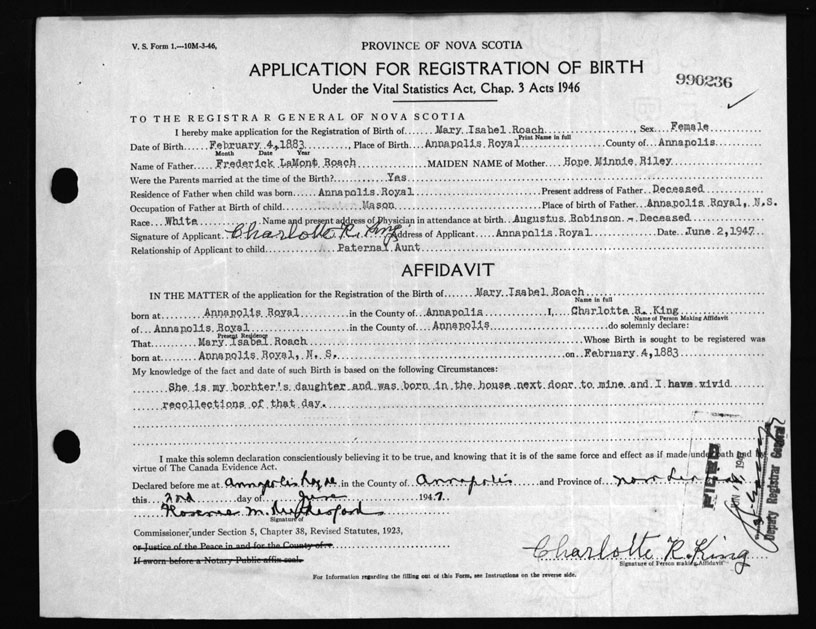 V. S. Form 1.—10M-3-46,
PROVINCE OF NOVA SCOTIA
APPLICATION FOR REGISTRATION OF BIRTH
Under the Vital Statistics Act, Chap. 3 Acts 1946
990236
TO THE REGISTRAR GENERAL OF NOVA SCOTIA
I hereby make application for the Registration of Birth of Mary Isabel Roach, Sex Female
Print Name in full
Date of Birth February 4,1883, Place of Birth Annapolis Royal County of Annapolis
Month Date Year
Name of Father Frederick LaMont Roach MAIDEN NAME of Mother Hope Minnie Riley
Were the Parents married at the time of the Birth? Yas
Residence of Father when child was born Annapolis Royal Present address of Father Deceased
Occupation of Father at Birth of child Mason Place of birth of Father Annapolis Royal, N.S.
Race White Name and present address of Physician in attendance at birth Augustus Robinson - Deceased
Signature of Applicant Charlotte R. King Address of Applicant Annapolis Royal Date June 2,1947
Relationship of Applicant to child Paternal Aunt
AFFIDAVIT
IN THE MATTER of the application for the Registration of the Birth of Mary Isabel Roach
Name in full
born at Annapolis Royal in the County of Annapolis I, Charlotte R. King
Name of Person Making Affidavit
of Annapolis Royal in the County of Annapolis do solemnly declare:
Present Residence
That Mary Isabel Roach Whose Birth is sought to be registered was
born at Annapolis Royal, N. S. on February 4,1883
My knowledge of the fact and date of such Birth is based on the following Circumstances:
She is my borhter's daughter and was born in the house next door to mine and I have vivid
recollections of that day.
I make this solemn declaration conscientiously believing it to be true, and knowing that it is of the same force and effect as if made under oath and by
virtue of The Canada Evidence Act.
Declared before me at Annapolis Royal in the County of Annapolis and Province of Nova Scotia
this 2nd day of June 1947
Signature of
Commissioner, under Section 5, Chapter 38, Revised Statutes, 1923,
or Justice of the Peace in and for the County of
If sworn before a Notary Public affix seal.
Charlotte R. King
Signature of Person making Affidavit
For Information regarding the filling out of this Form, see Instructions on the reverse side.
FILED
Deputy Registrar General